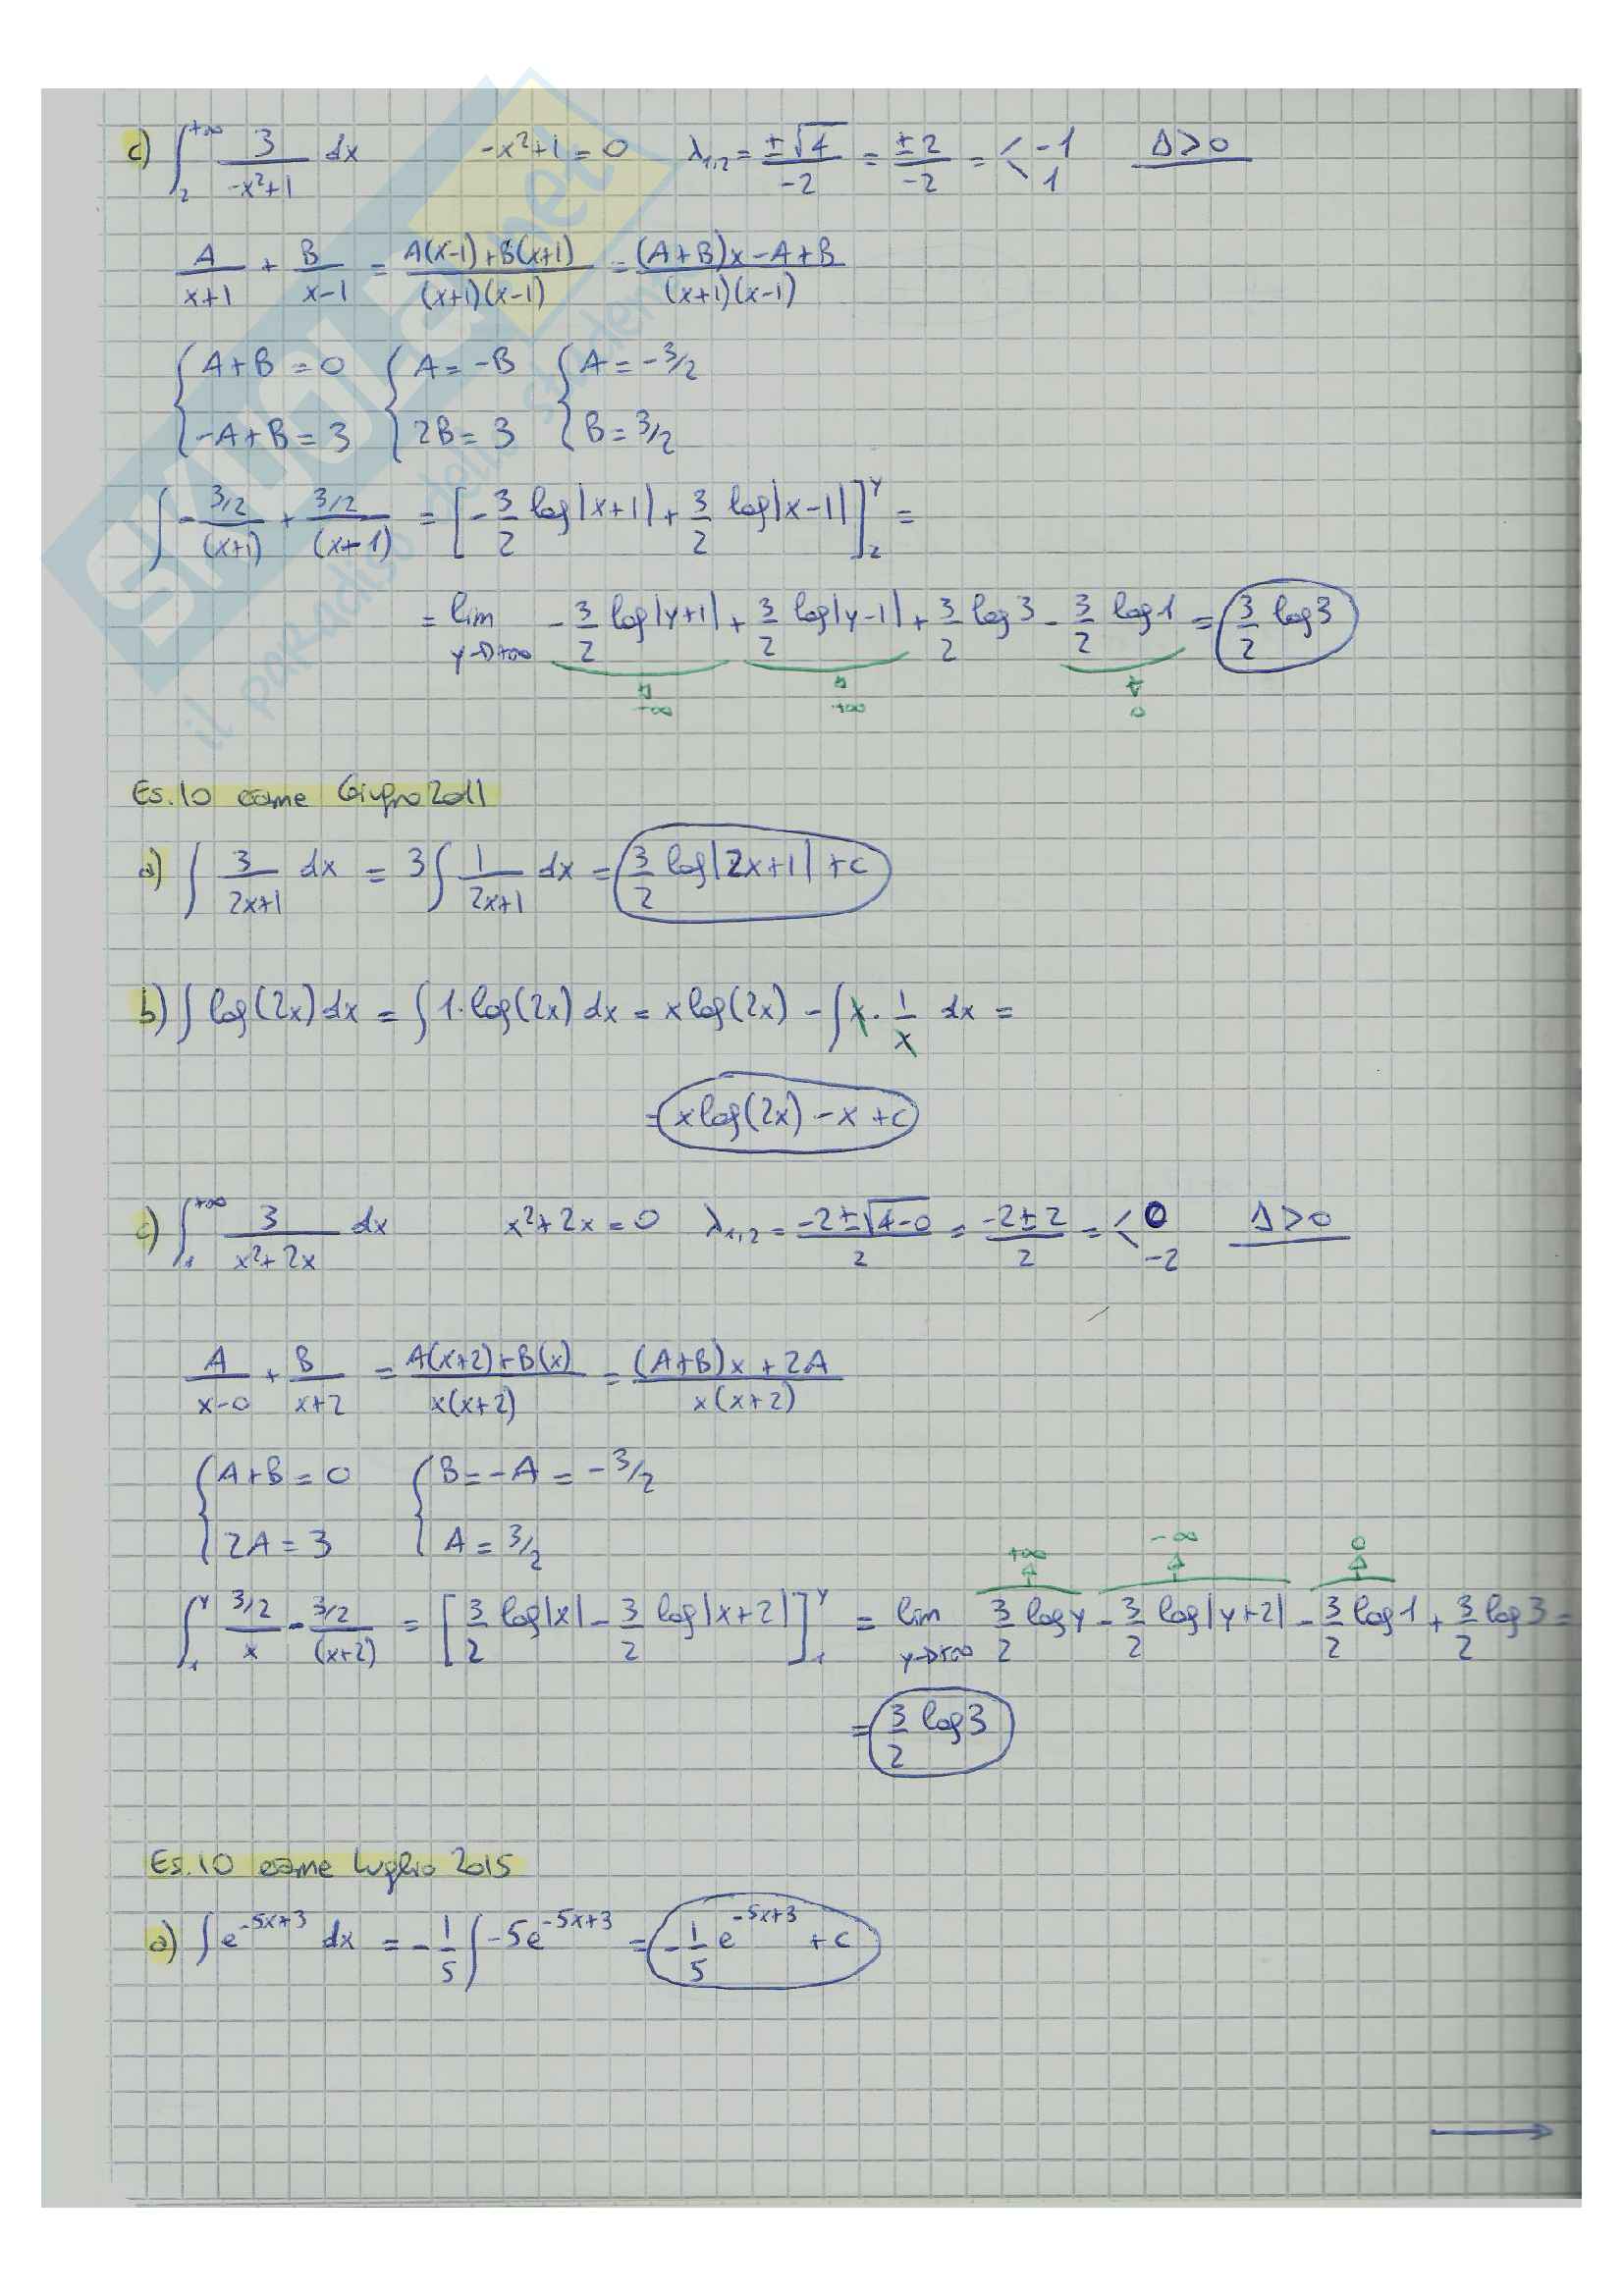 c) ∫₂^{+∞} 3/(-x²+1) dx -x²+1=0 λ₁,₂ = ±√4/-2 = ±2/-2 = < -1 1 Δ>0
A/(x+1) + B/(x-1) = (A(x-1)+B(x+1))/((x+1)(x-1)) = ((A+B)x-A+B)/((x+1)(x-1))
{A+B=0 {A=-B {A=-3/2
{-A+B=3 {2B=3 {B=3/2
∫ -(3/2)/(x+1) + (3/2)/(x+1) = [-3/2 log|x+1| + 3/2 log|x-1|]₂^y =
= lim y→+∞ -3/2 log|y+1| + 3/2 log|y-1| + 3/2 log3 - 3/2 log1 = 3/2 log3
-∞ +∞ 0
Es.10 esame Giugno 2011
a) ∫ 3/(2x+1) dx = 3∫ 1/(2x+1) dx = 3/2 log|2x+1| +c
b) ∫ log(2x) dx = ∫ 1·log(2x) dx = x log(2x) - ∫ x · 1/x dx =
= x log(2x) - x + c
c) ∫₁^{+∞} 3/(x²+2x) dx x²+2x=0 λ₁,₂ = (-2±√4-0)/2 = (-2±2)/2 = < 0 -2 Δ>0
A/(x-0) + B/(x+2) = (A(x+2)+B(x))/(x(x+2)) = ((A+B)x+2A)/(x(x+2))
{A+B=0 {B=-A=-3/2
{2A=3 {A=3/2
+∞ -∞ 0
∫₁^y (3/2)/x - (3/2)/(x+2) = [3/2 log|x| - 3/2 log|x+2|]₁^y = lim y→+∞ 3/2 log y - 3/2 log|y+2| - 3/2 log1 + 3/2 log3 =
= 3/2 log3
Es.10 esame Luglio 2015
a) ∫ e^{-5x+3} dx = -1/5 ∫ -5e^{-5x+3} = -1/5 e^{-5x+3} +c
SKUOLA.net
il paradiso dello studente